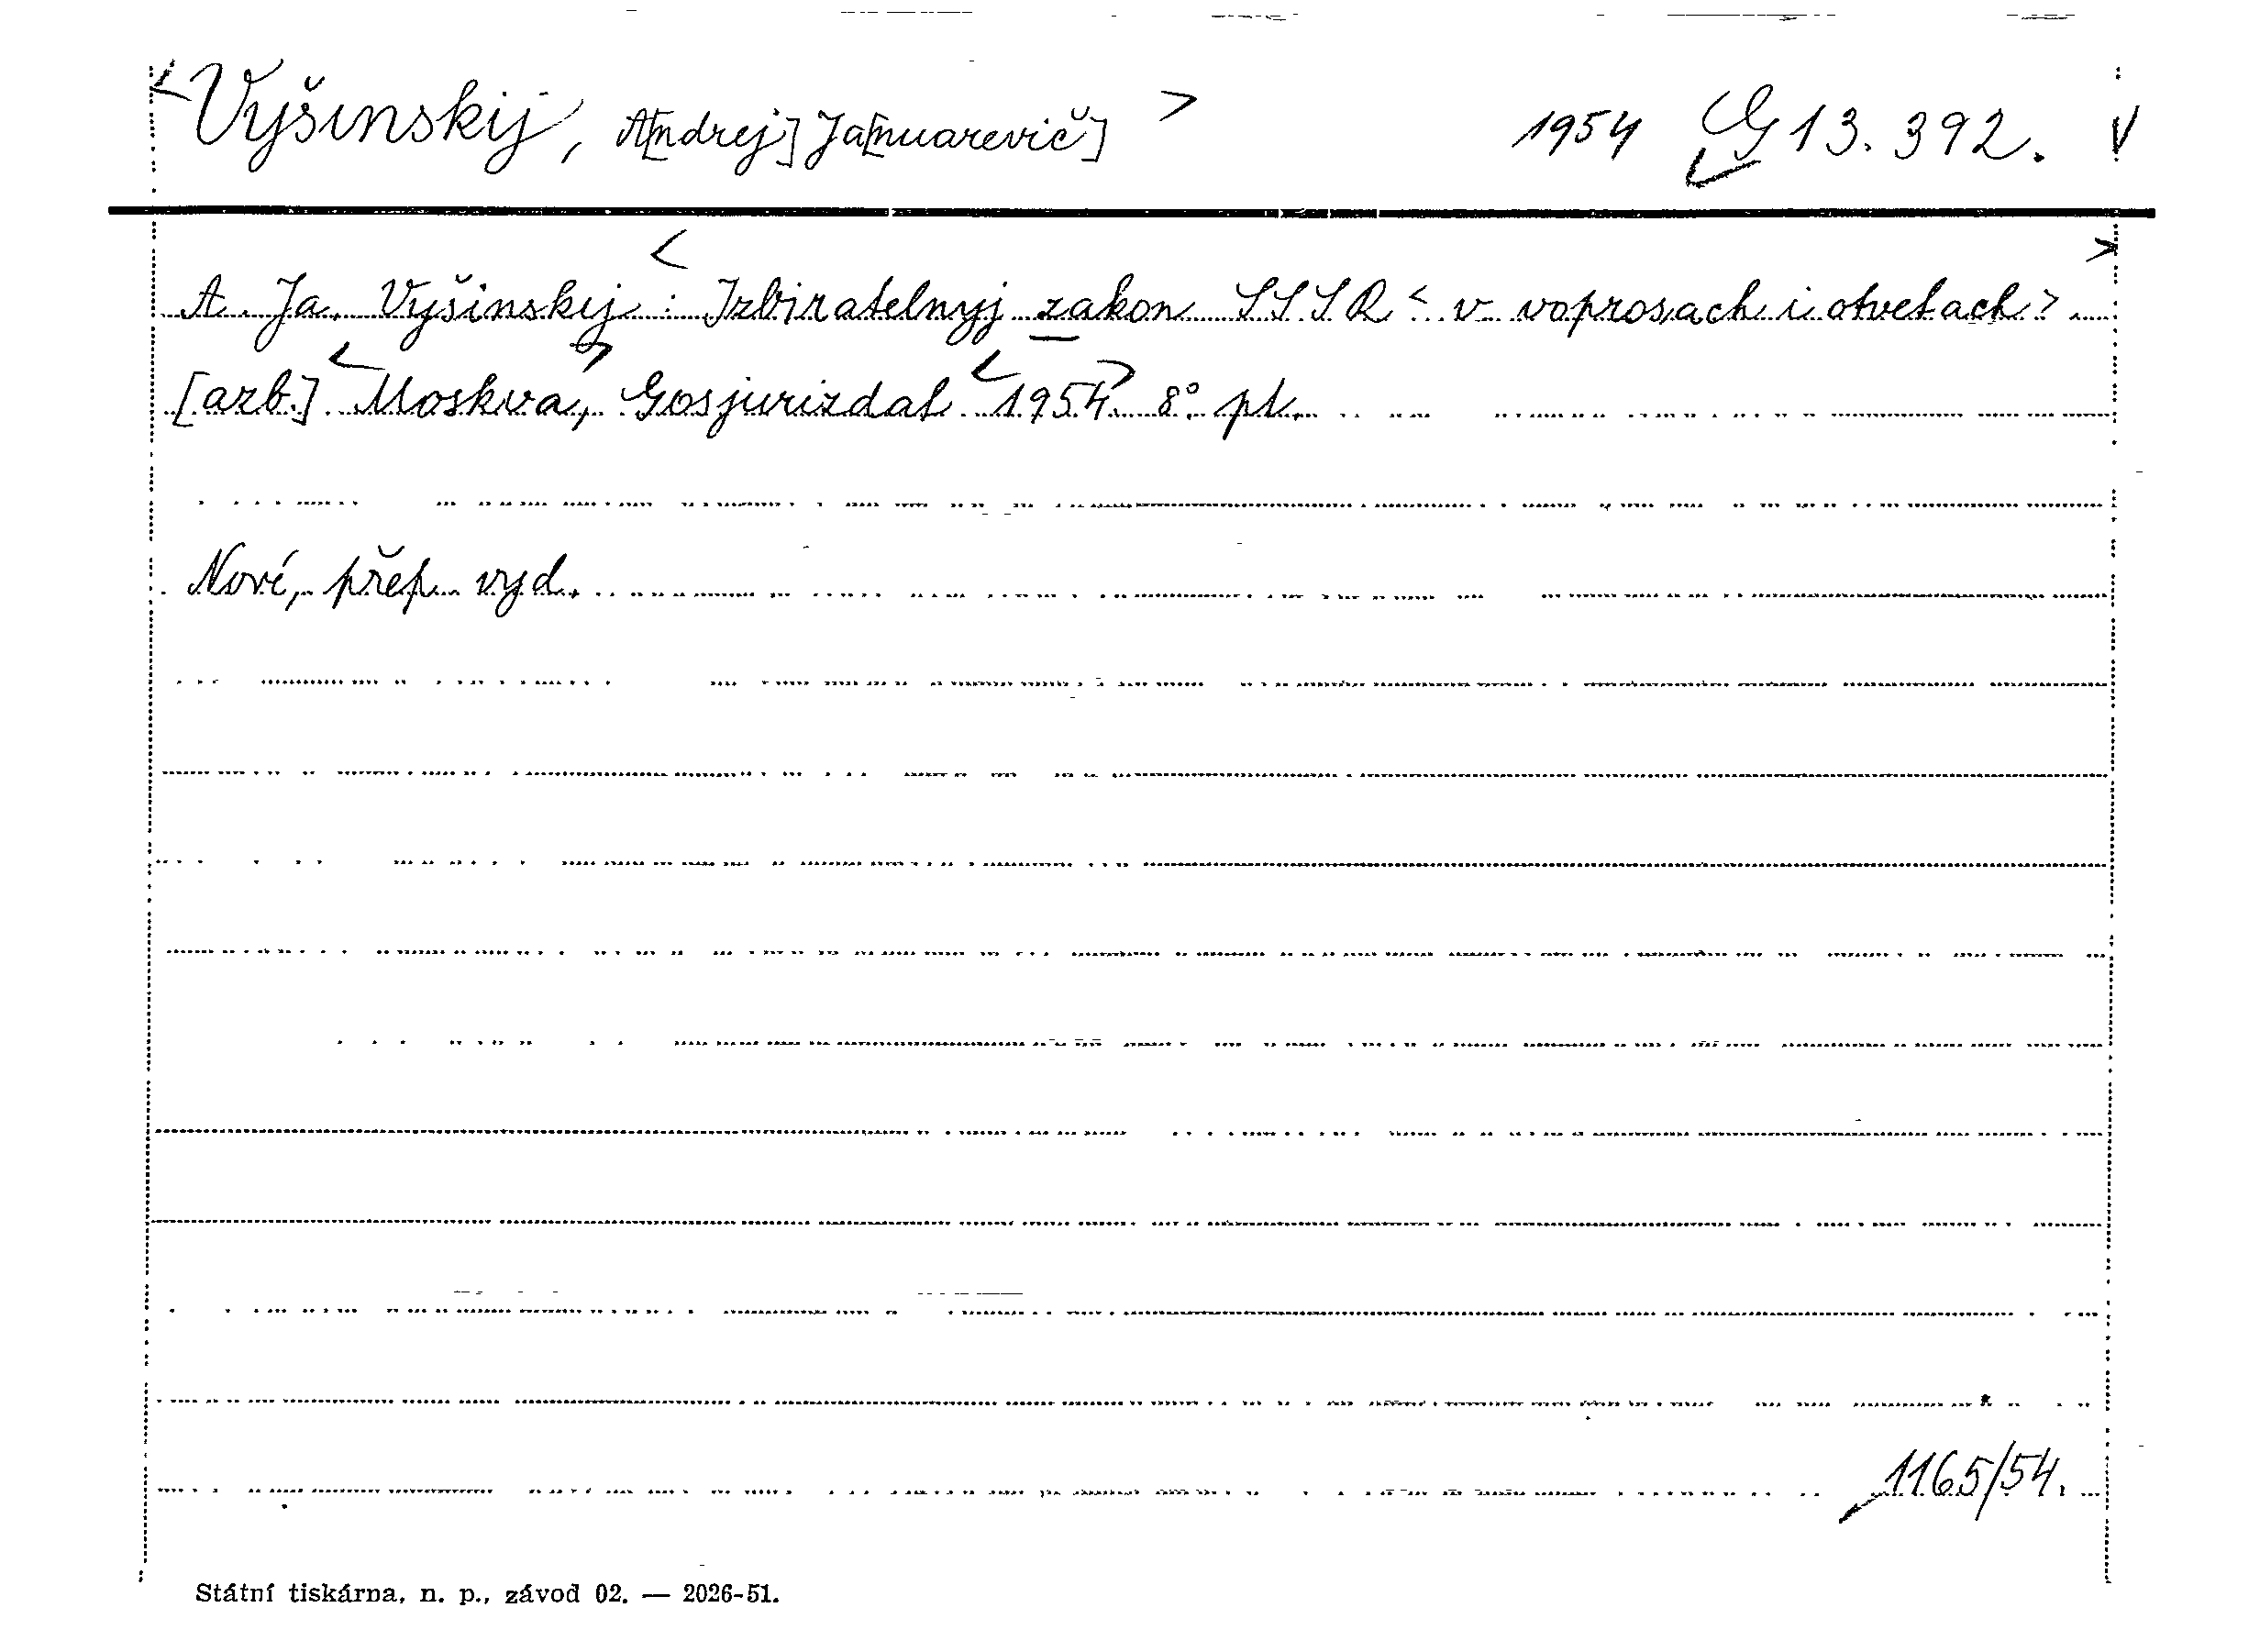 <Vyšinskij, A[ndrej] Ja[nuarevič]> 1954 G 13.392.
A. Ja. Vyšinskij: <Izbiratelnyj zakon SSSR <v voprosach i otvetach>.>
[azb.] <Moskva,> Gosjurizdat <1954> 8° pl.
Nové, přep. vyd.
1165/54.
Státní tiskárna, n. p., závod 02. — 2026-51.